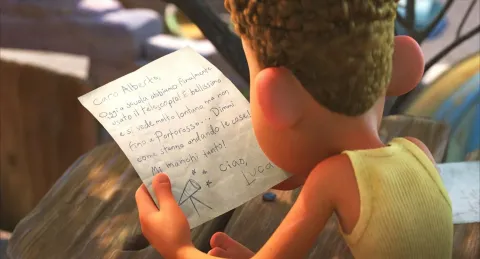 Caro Alberto,
Oggi a scuola abbiamo finalmente
usato il telescopio! È bellissimo
e si vede molto lontano ma non
fino a Portorosso... Dimmi
come stanno andando le cose!
Mi manchi tanto!
Ciao,
Luca